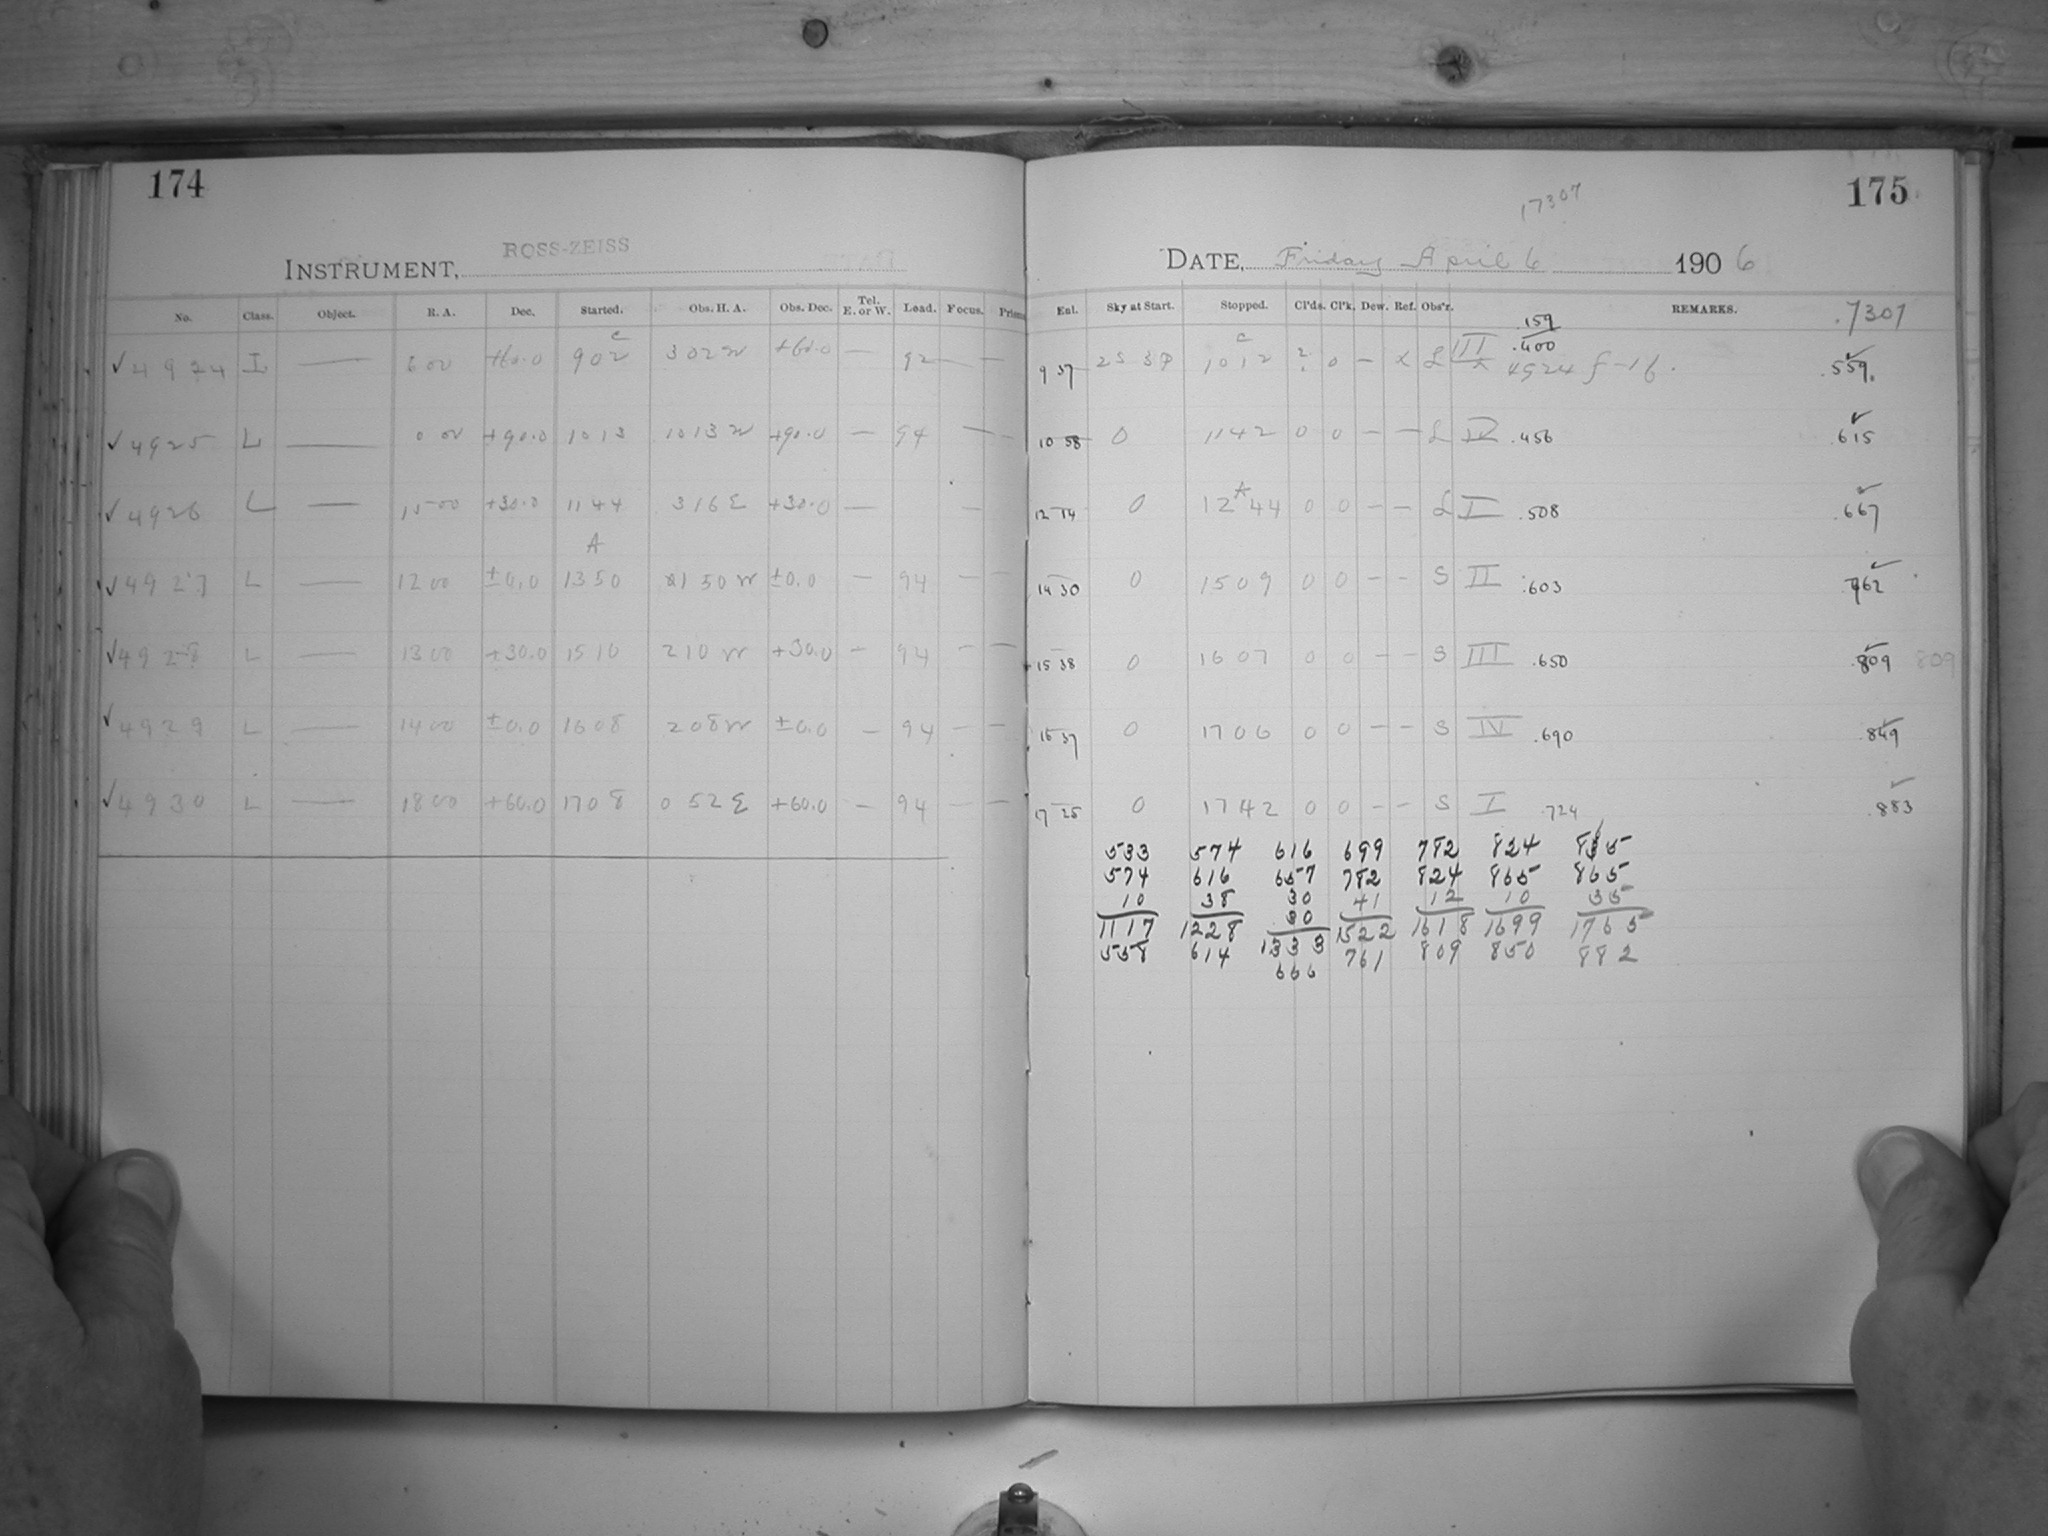 174
INSTRUMENT, ROSS-ZEISS
No. Class. Object. R. A. Dec. Started. Obs. H. A. Obs. Dec. Tel. E. or W. Load. Focus. Prisms
✓4924 I — 6 00 +60.0 9 02 C 3 02 W +60.0 — 92 — —
✓4925 L — 0 00 +90.0 10 13 10 13 W +90.0 — 94 — —
✓4926 L — 15 00 +30.0 11 44 3 16 E +30.0 — —
A
✓4927 L — 12 00 ±0.0 13 50 1 50 W ±0.0 — 94 — —
✓4928 L — 13 00 +30.0 15 10 2 10 W +30.0 — 94 — —
✓4929 L — 14 00 ±0.0 16 08 2 08 W ±0.0 — 94 — —
✓4930 L — 18 00 +60.0 17 08 0 52 E +60.0 — 94 — —
175
17307
DATE, Friday April 6 1906
Ent. Sky at Start. Stopped. Cl'ds. Cl'k. Dew. Ref. Obs'r. REMARKS. .7307
.159
.400
9 37 10 12 C ? 0 — L III 4924 f-16. .559
10 58 0 11 42 0 0 — — L IV .456 .615
12 14 0 12 A 44 0 0 — — L I .508 .667
14 30 0 15 09 0 0 — — S II .603 762
15 38 0 16 07 0 0 — — S III .650 .809 809
16 37 0 17 06 0 0 — — S IV .690 .849
17 25 0 17 42 0 0 — — S I .724 .883
533 574 616 699 782 824
574 616 657 782 824 865 865
10 38 30 41 12 10 35
30
1117 1228 1333 1522 1618 1699 1765
558 614 666 761 809 850 882